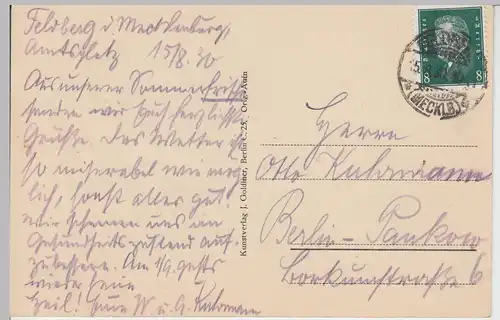 Feldberg i Mecklenburg,
Amtsplatz 15/8.30
Aus unserer Sommerfrische
senden wir Euch herzlichste
Grüße. Das Wetter ist
so miserabel wie mög-
lich, sonst alles gut,
wir scheinen uns im
Gesundheitszustand auf-
zubessern. Am 1/9. gehts
wieder heim
Heil! Eure W u. G. Kuhrmann
Kunstverlag J. Goldiner, Berlin C. 25, Orig.-Aufn
8 8
(MECKLB)
Herrn
Otto
Berlin-Pankow
Borkumstraße 6